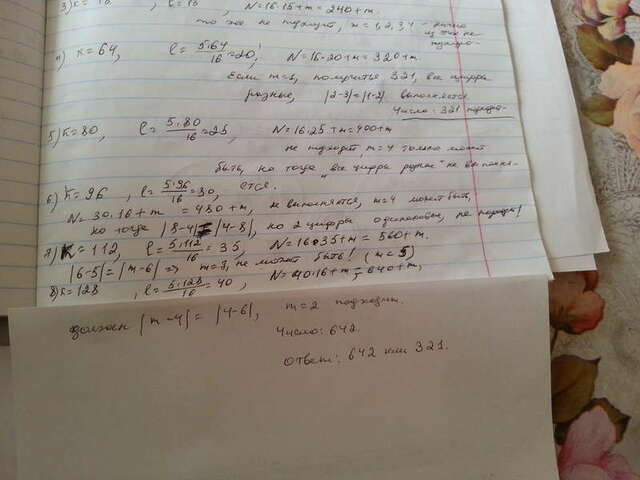 N = 16·15 + m = 240 + m.
то же не подходит, m = 1, 2, 3, 4 -
4) k = 64, l = 5·64/16 = 20, N = 16·20 + m = 320 + m.
Если m = 1, получится 321, все цифры
разные, |2-3| = |1-2| выполняется
Число: 321
5) k = 80, l = 5·80/16 = 25, N = 16·25 + m = 400 + m
не подходит, m = 4 только может
быть, но тогда "все цифры разные" не выполня-
ется.
6) k = 96, l = 5·96/16 = 30,
N = 30·16 + m = 480 + m, не выполняется, m = 4 может быть,
но тогда |8-4| = |4-8|, но 2 цифры одинаковы, не
7) k = 112, l = 5·112/16 = 35, N = 16·35 + m = 560 + m.
|6-5| = |m-6| => m = не может быть! (m < 5)
8) k = 128, l = 5·128/16 = 40, N = 40·16 + m = 640 + m,
должен |m-4| = |4-6|, m = 2 подходит.
Число: 642.
Ответ: 642 или 321.